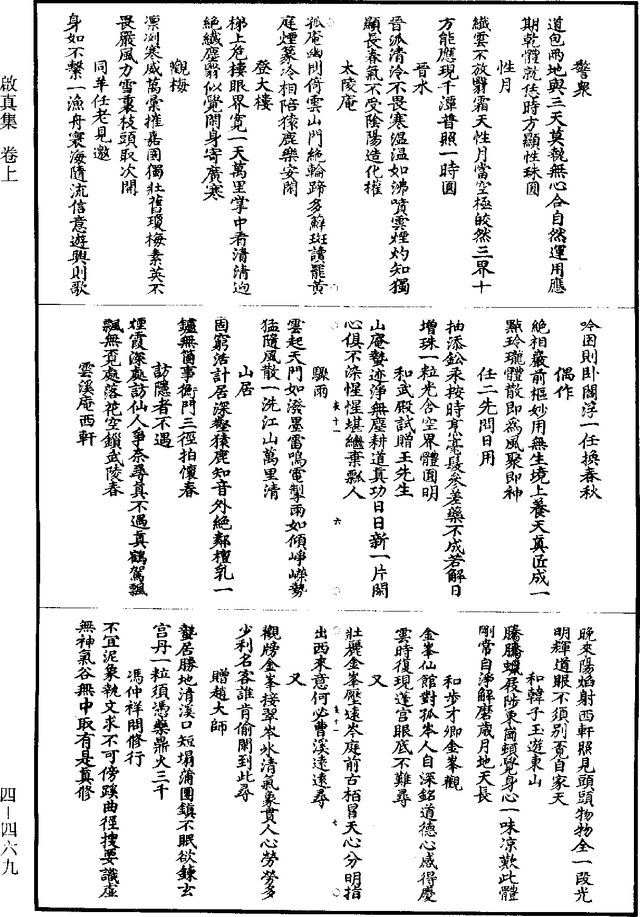 警衆
道包兩地與三天莫執無心合自然運用應
期乾體就恁時方顯性珠圓
性月
纖雲不放翳霜天性月當空極皎然三界十
方能應現千潭普照一時圓
晉水
晉派清泠不畏寒溫溫如沸噴雲煙灼知獨
顯長春氣不受陰陽造化權
太陵庵
孤庵幽閴倚雲山門絶輪蹄多蘚斑讀罷黄
庭煙篆冷相陪猿鹿樂安閑
登大樓
梯上危樓眼界寬一天萬里掌中看清清迥
絶纖塵翳似覺閑身寄廣寒
觀梅
凛冽寒威萬彙摧嘉園獨壯舊瓊梅素英不
畏嚴風力雪裏枝頭取次開
同華任老見邀
身如不繫一漁舟寰海隨流信意遊興則歌
吟困則卧閻浮一任換春秋
偶作
絶相巖前樞妙用無生境上養天真匠成一
點玲瓏體散即爲風聚即神
任二先問日用
抽添鈆汞按時亨毫髮參差藥不成若解日
增珠一粒光含空界體圓明
和武殿試贈王先生
山庵塾迹淨無塵耕道真功日日新一片閑
心俱不染惺惺堪繼棄瓢人
驟雨
雲起天門如潑墨雷鳴電掣雨如傾崢嶸勢
猛隨風散一洗江山萬里清
山居
固窮活計居深壑猿鹿知音外絶鄰檀乳一
鑪無箇事衡門三徑拍懷春
訪隱者不遇
煙霞深處訪仙人爭奈尋真不遇真鶴駕飄
飄無覓處落花空鎖武陵春
雲溪庵西軒
晚來陽焰射西軒照見頭頭物物全一段光
明輝道眼不須别覓自家天
和韓子玉遊東山
騰騰蠟屐陟東崗頓覺身心一味凉歎此體
剛常自淨解磨歲月地天長
和步才卿金峯觀
金峯仙館對孤岑人自深銘道德心感得慶
雲時復現蓬宫眼底不難尋
又
壯麗金峯壓遠岑庭前古栢冒天心分明指
出西來意何必曹溪遠遠尋
又
觀牓金峯接翠岑水清氣象貫人心勞勞多
少利名客誰肯偷閑到此尋
贈趙大師
蟄居勝地清溪口短塌蒲團鎮不眠欲鍊玄
宫丹一粒須馮藥鼎火三千
馮仲祥問修行
不宜泥象執文求不可傍蹊曲徑搜要識虛
無神氣谷無中取有是真修
啟真集　卷上
四－四六九